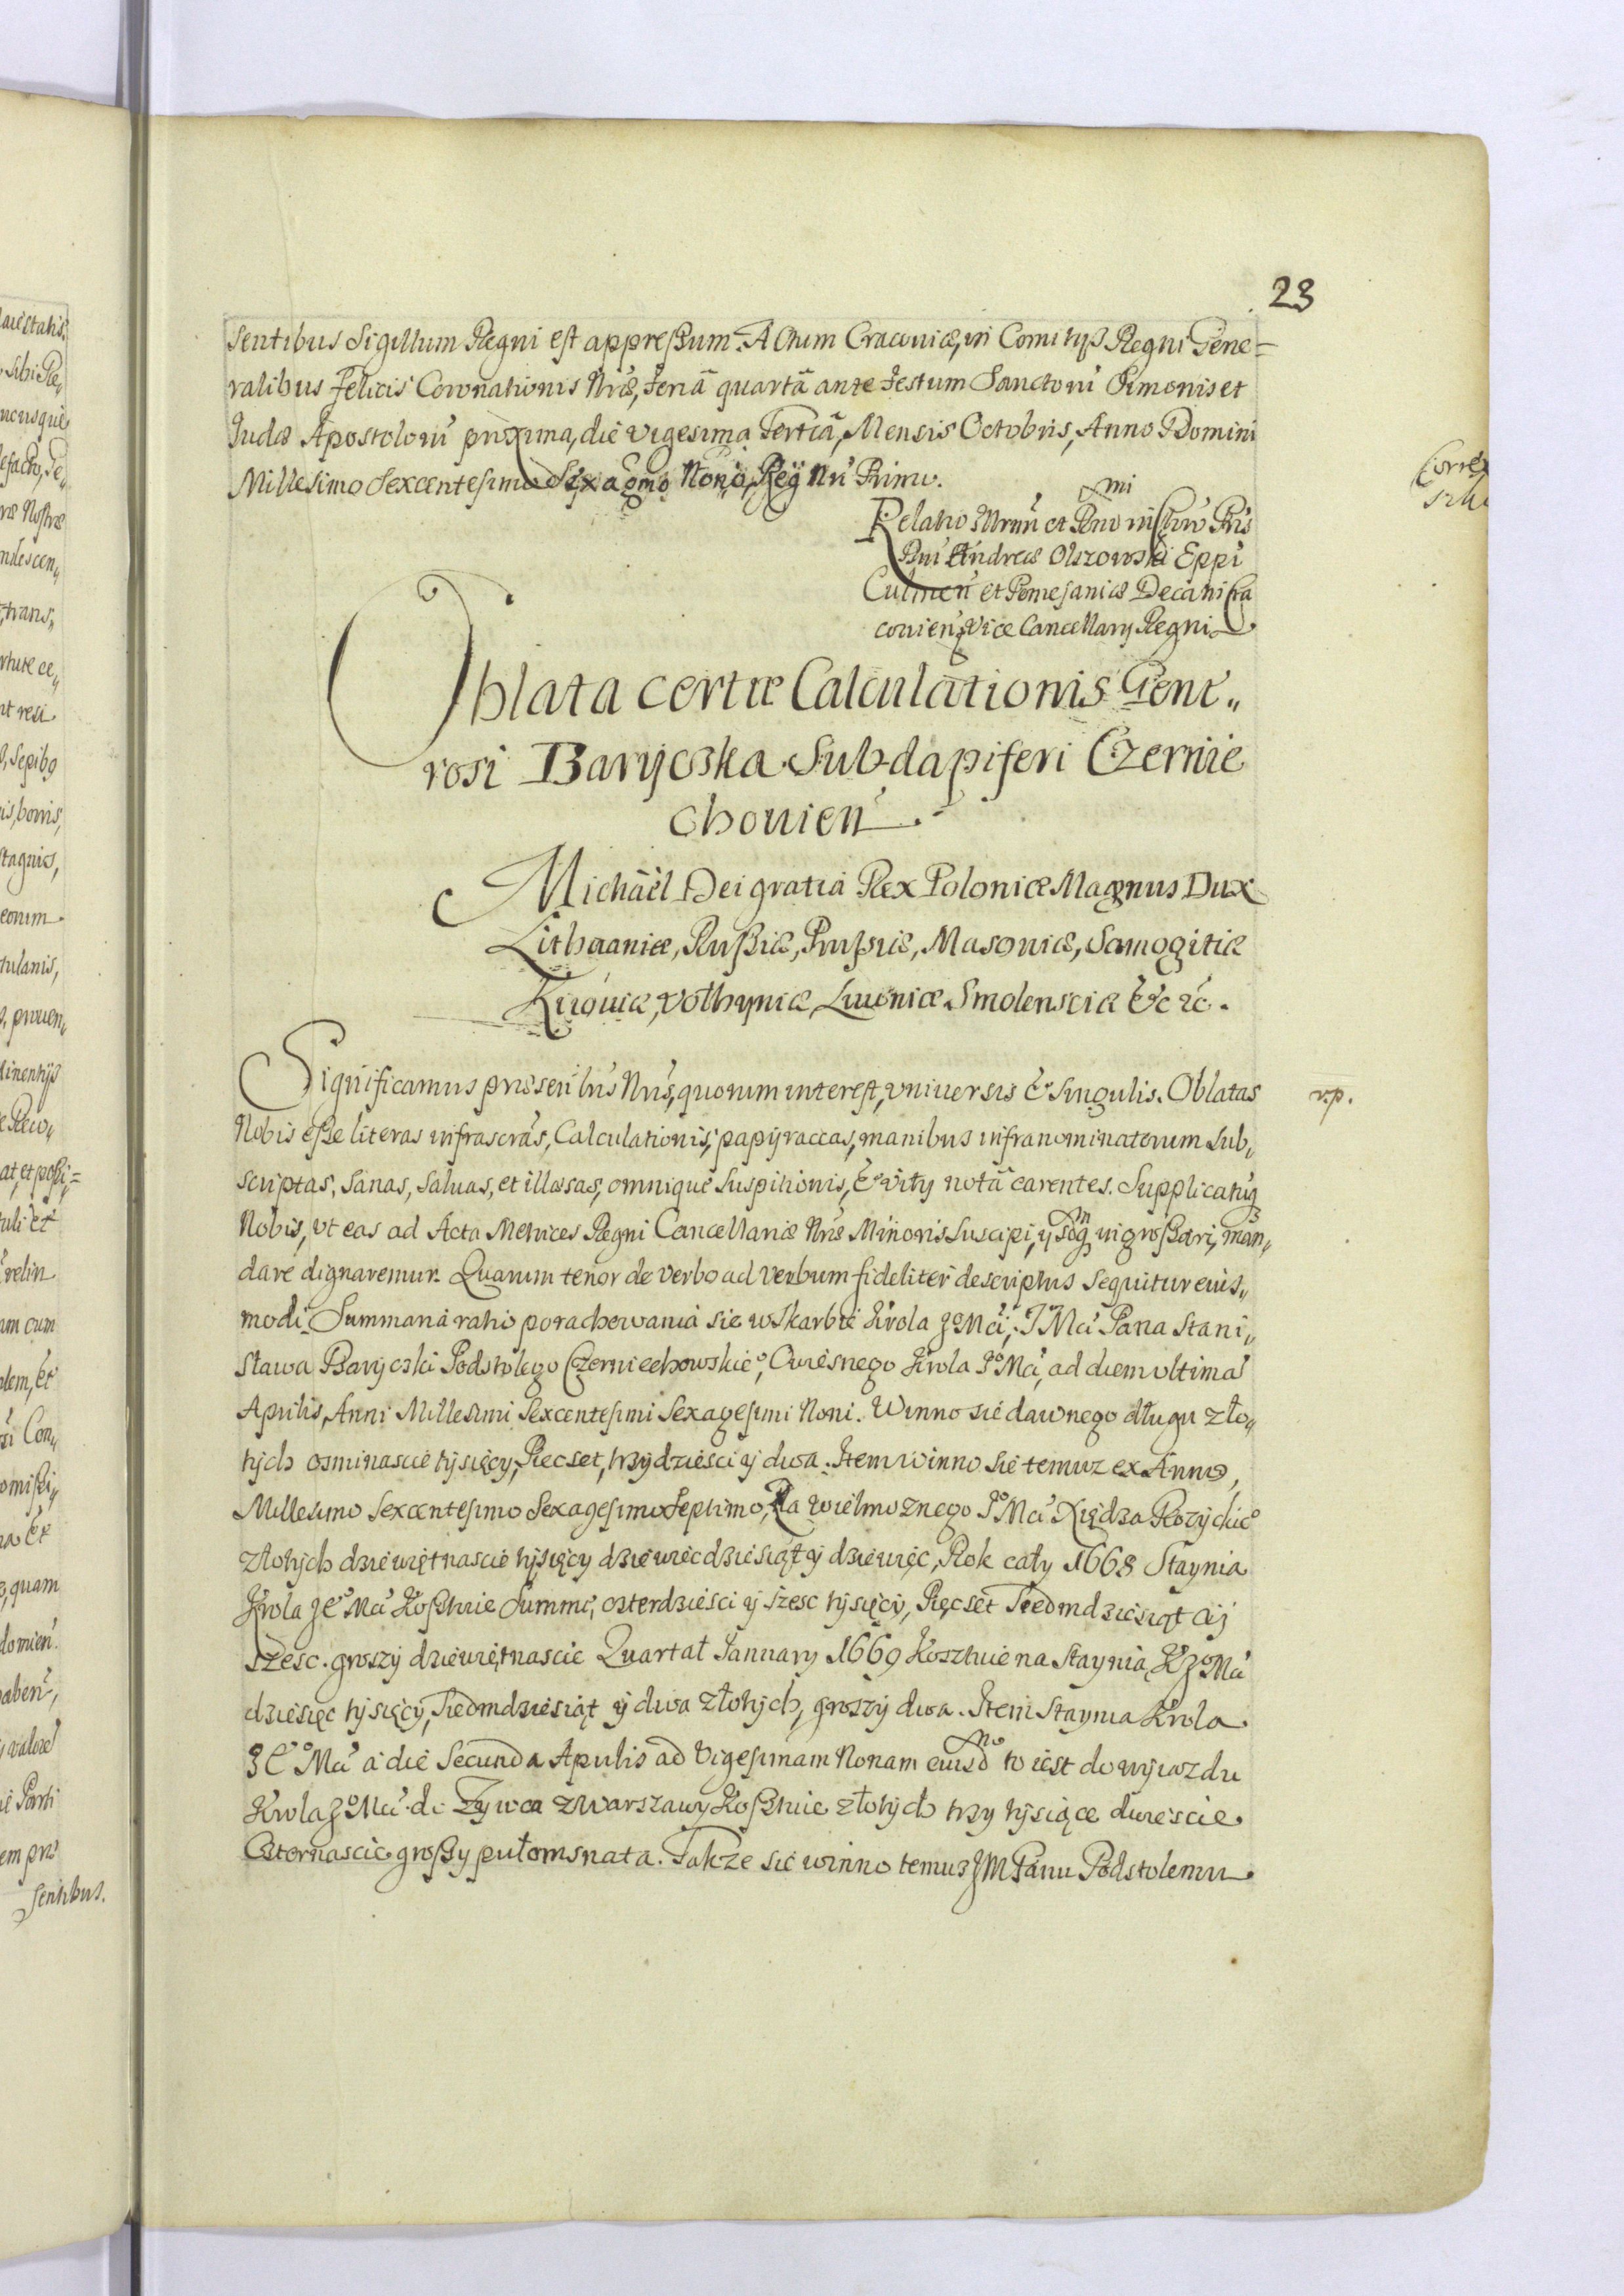 23
sentibus Sigillum Regni est appressum. Actum Cracoviæ, in Comitijs Regni Gene=
ralibus Felicis Coronationis Nræ, Feriâ quartâ ante Festum Sanctorū Simonis et
Judæ Apostolorū proxima, die vigesima Tertiâ, Mensis Octobris, Anno Domini
Millesimo Sexcentesimo Sexagmo Nono, Regni Nri Primo.
Relatio Illrmi et Rndmi in Chro Pris
Dni Andreæ Olszowski Eppi
Culmeń et Pomesaniæ Decani Cra
covień, Vice Cancellarij Regni
Oblata certæ Calculationis Gene„
rosi Baryczka Subdapiferi Czernie
chovień.
Michäel Dei gratia Rex Poloniæ Magnus Dux
Lithuaniæ, Rußiæ, Prußiæ, Masoviæ, Samogitiæ
Kijoviæ, Volhyniæ, Livoniæ Smolensciæ &c &c.
Significamus præsentibūs Nrīs, quorum interest, vniversis & Singulis. Oblatas
v.p.
Nobis eße literas infrascrās, Calculationis, papijraceas, manibus infranominatorum Sub„
scriptas, Sanas, Salvas, et illæsas, omnique Suspitionis, & vitij notâ carentes. Supplicatūq
Nobis, vt eas ad Acta Metrices Regni Cancellariæ Nræ Minoris Suscipi, ingroßari, man„
dare dignaremur. Quarum tenor de verbo ad verbum fideliter descriptus Sequitur eius„
modi. Summaria ratio porachowania sie w Skarbie Krola JoMci, JMci Pana Stani„
sława Baryczki Podstolego Czerniechowskieo, Cwiesnego Krola JoMci, ad diem vltimā
Aprilis, Anni Millesimi Sexcentesimi Sexagesimi Noni. Winno sie dawnego długu zło„
tych osminascie tysięcy, Piecset, trzydziesci y dwa. Item winno sie temuz ex Anno,
Millesimo Sexcentesimo Sexagesimo Septimo, Za Wielmoznego JoMci Xiędza Rozyckieo
złotych dziewiętnascie tysięcy dziewiecdziesiąt y dziewięc, Rok cały 1668 Staynia
Krola JeoMci Koßtuie Summe, czterdziesci y szesc tysięcy, Pięcset Siedmdziesiąt ij
szesc. groszy dziewiętnascie Quartał January 1669 Kosztuie na Staynią KJoMci
dziesięc tysięcy, Siedmdziesiąt y dwa złotych, groszy dwa. Item Staynia Krola
JEoMci a die Secunda Aprilis ad Vigesimam Nonam eiusd to iest do wyiazdu
Krola JoMci do Zywca z Warszawy Koßtuie złotych trzy tysiące dwiescie
Czternascie großy pułosmnasta. Takze sie winno temuz JM Panu Podstolemu